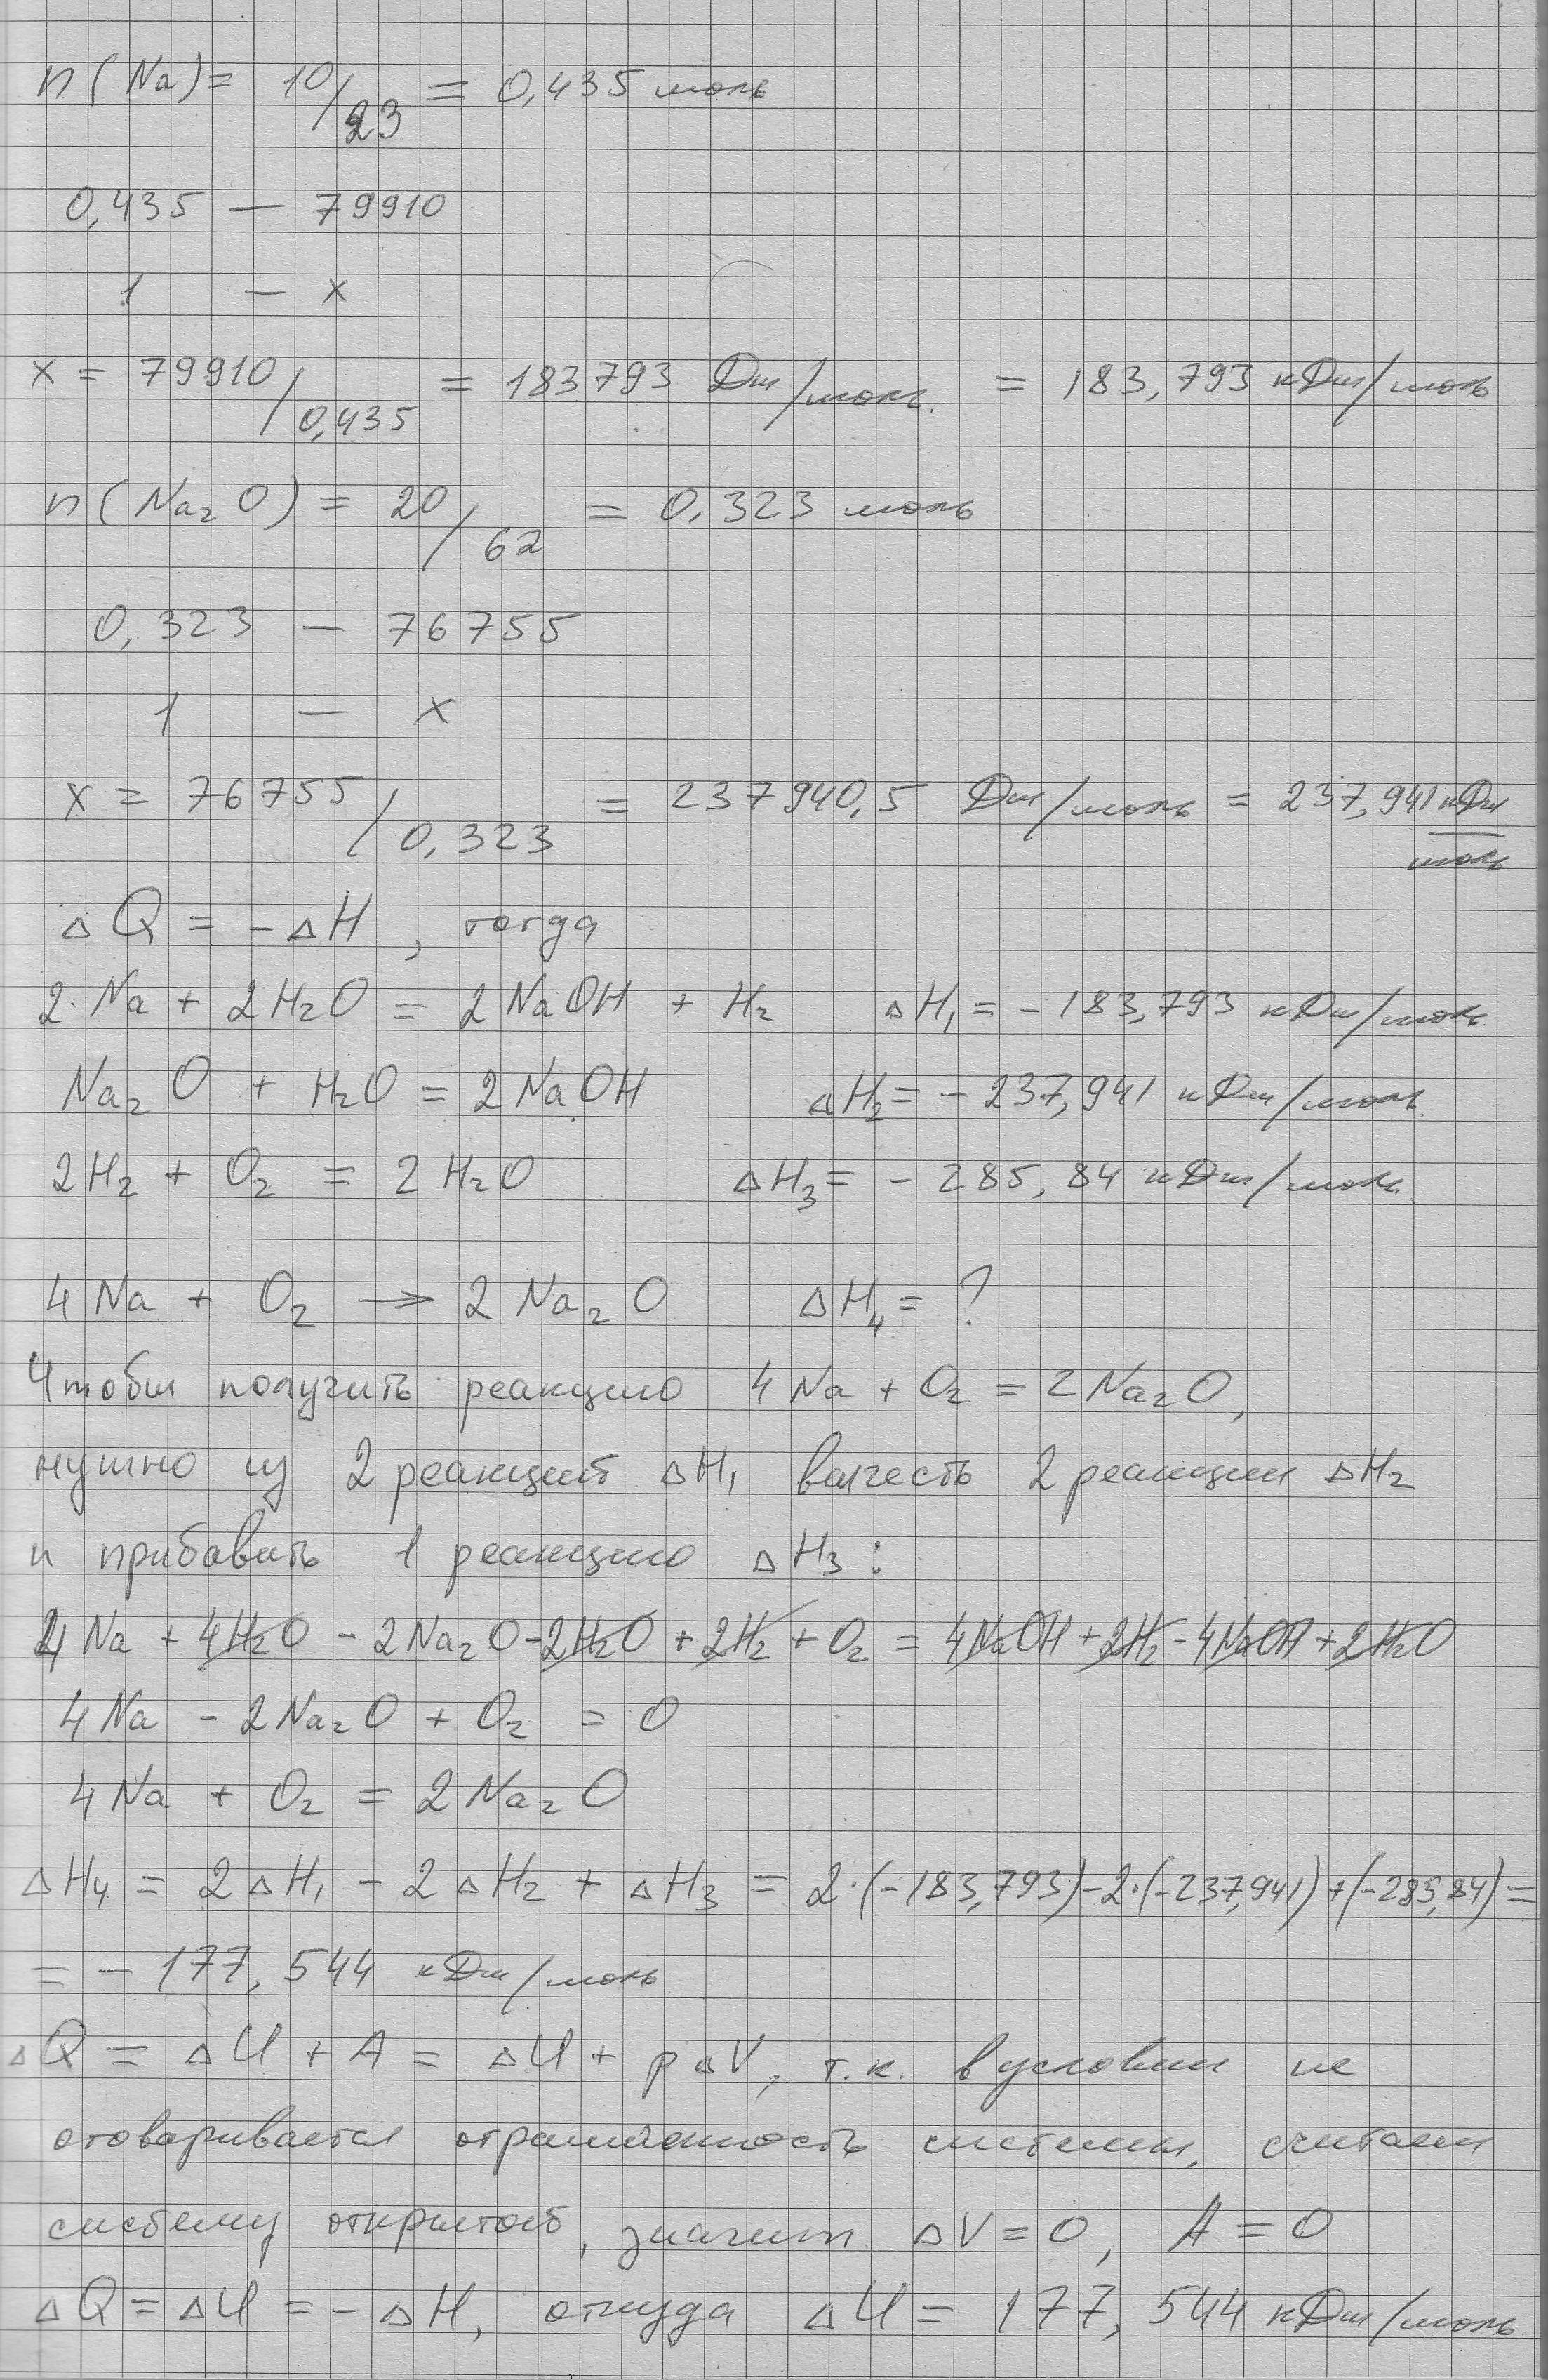 n(Na) = 10/23 = 0,435 моль
0,435 — 79910
1 — x
x = 79910/0,435 = 183793 Дж/моль = 183,793 кДж/моль
n(Na₂O) = 20/62 = 0,323 моль
0,323 — 76755
1 — x
x = 76755/0,323 = 237940,5 Дж/моль = 237,941 кДж/моль
ΔQ = -ΔH, тогда
2Na + 2H₂O = 2NaOH + H₂ ΔH₁ = -183,793 кДж/моль
Na₂O + H₂O = 2NaOH ΔH₂ = -237,941 кДж/моль
2H₂ + O₂ = 2H₂O ΔH₃ = -285,84 кДж/моль
4Na + O₂ → 2Na₂O ΔH₄ = ?
Чтобы получить реакцию 4Na + O₂ = 2Na₂O,
нужно из 2 реакций ΔH₁ вычесть 2 реакции ΔH₂
и прибавить 1 реакцию ΔH₃:
4Na + 4H₂O - 2Na₂O - 2H₂O + 2H₂ + O₂ = 4NaOH + 2H₂ - 4NaOH + 2H₂O
4Na - 2Na₂O + O₂ = 0
4Na + O₂ = 2Na₂O
ΔH₄ = 2ΔH₁ - 2ΔH₂ + ΔH₃ = 2·(-183,793) - 2·(-237,941) + (-285,84) =
= -177,544 кДж/моль
ΔQ = ΔU + A = ΔU + pΔV, т.к. в условии не
оговаривается ограниченность системы, считаем
систему открытой, значит ΔV = 0, A = 0
ΔQ = ΔU = -ΔH, откуда ΔU = 177,544 кДж/моль